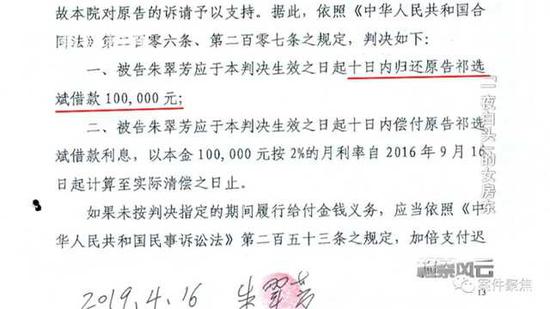 故本院对原告的诉请予以支持。据此，依照《中华人民共和国合
同法》第二百零六条、第二百零七条之规定，判决如下：
一、被告朱翠芳应于本判决生效之日起十日内归还原告祁选
斌借款100,000元；
二、被告朱翠芳应于本判决生效之日起十日内偿付原告祁选
斌借款利息，以本金100,000元按2%的月利率自2016年9月16
日起计算至实际清偿之日止。
如果未按判决指定的期间履行给付金钱义务，应当依照《中
华人民共和国民事诉讼法》第二百五十三条之规定，加倍支付迟
2019.4.16 朱翠芳
13
「一夜白头」的女房东
检察风云
案件聚焦